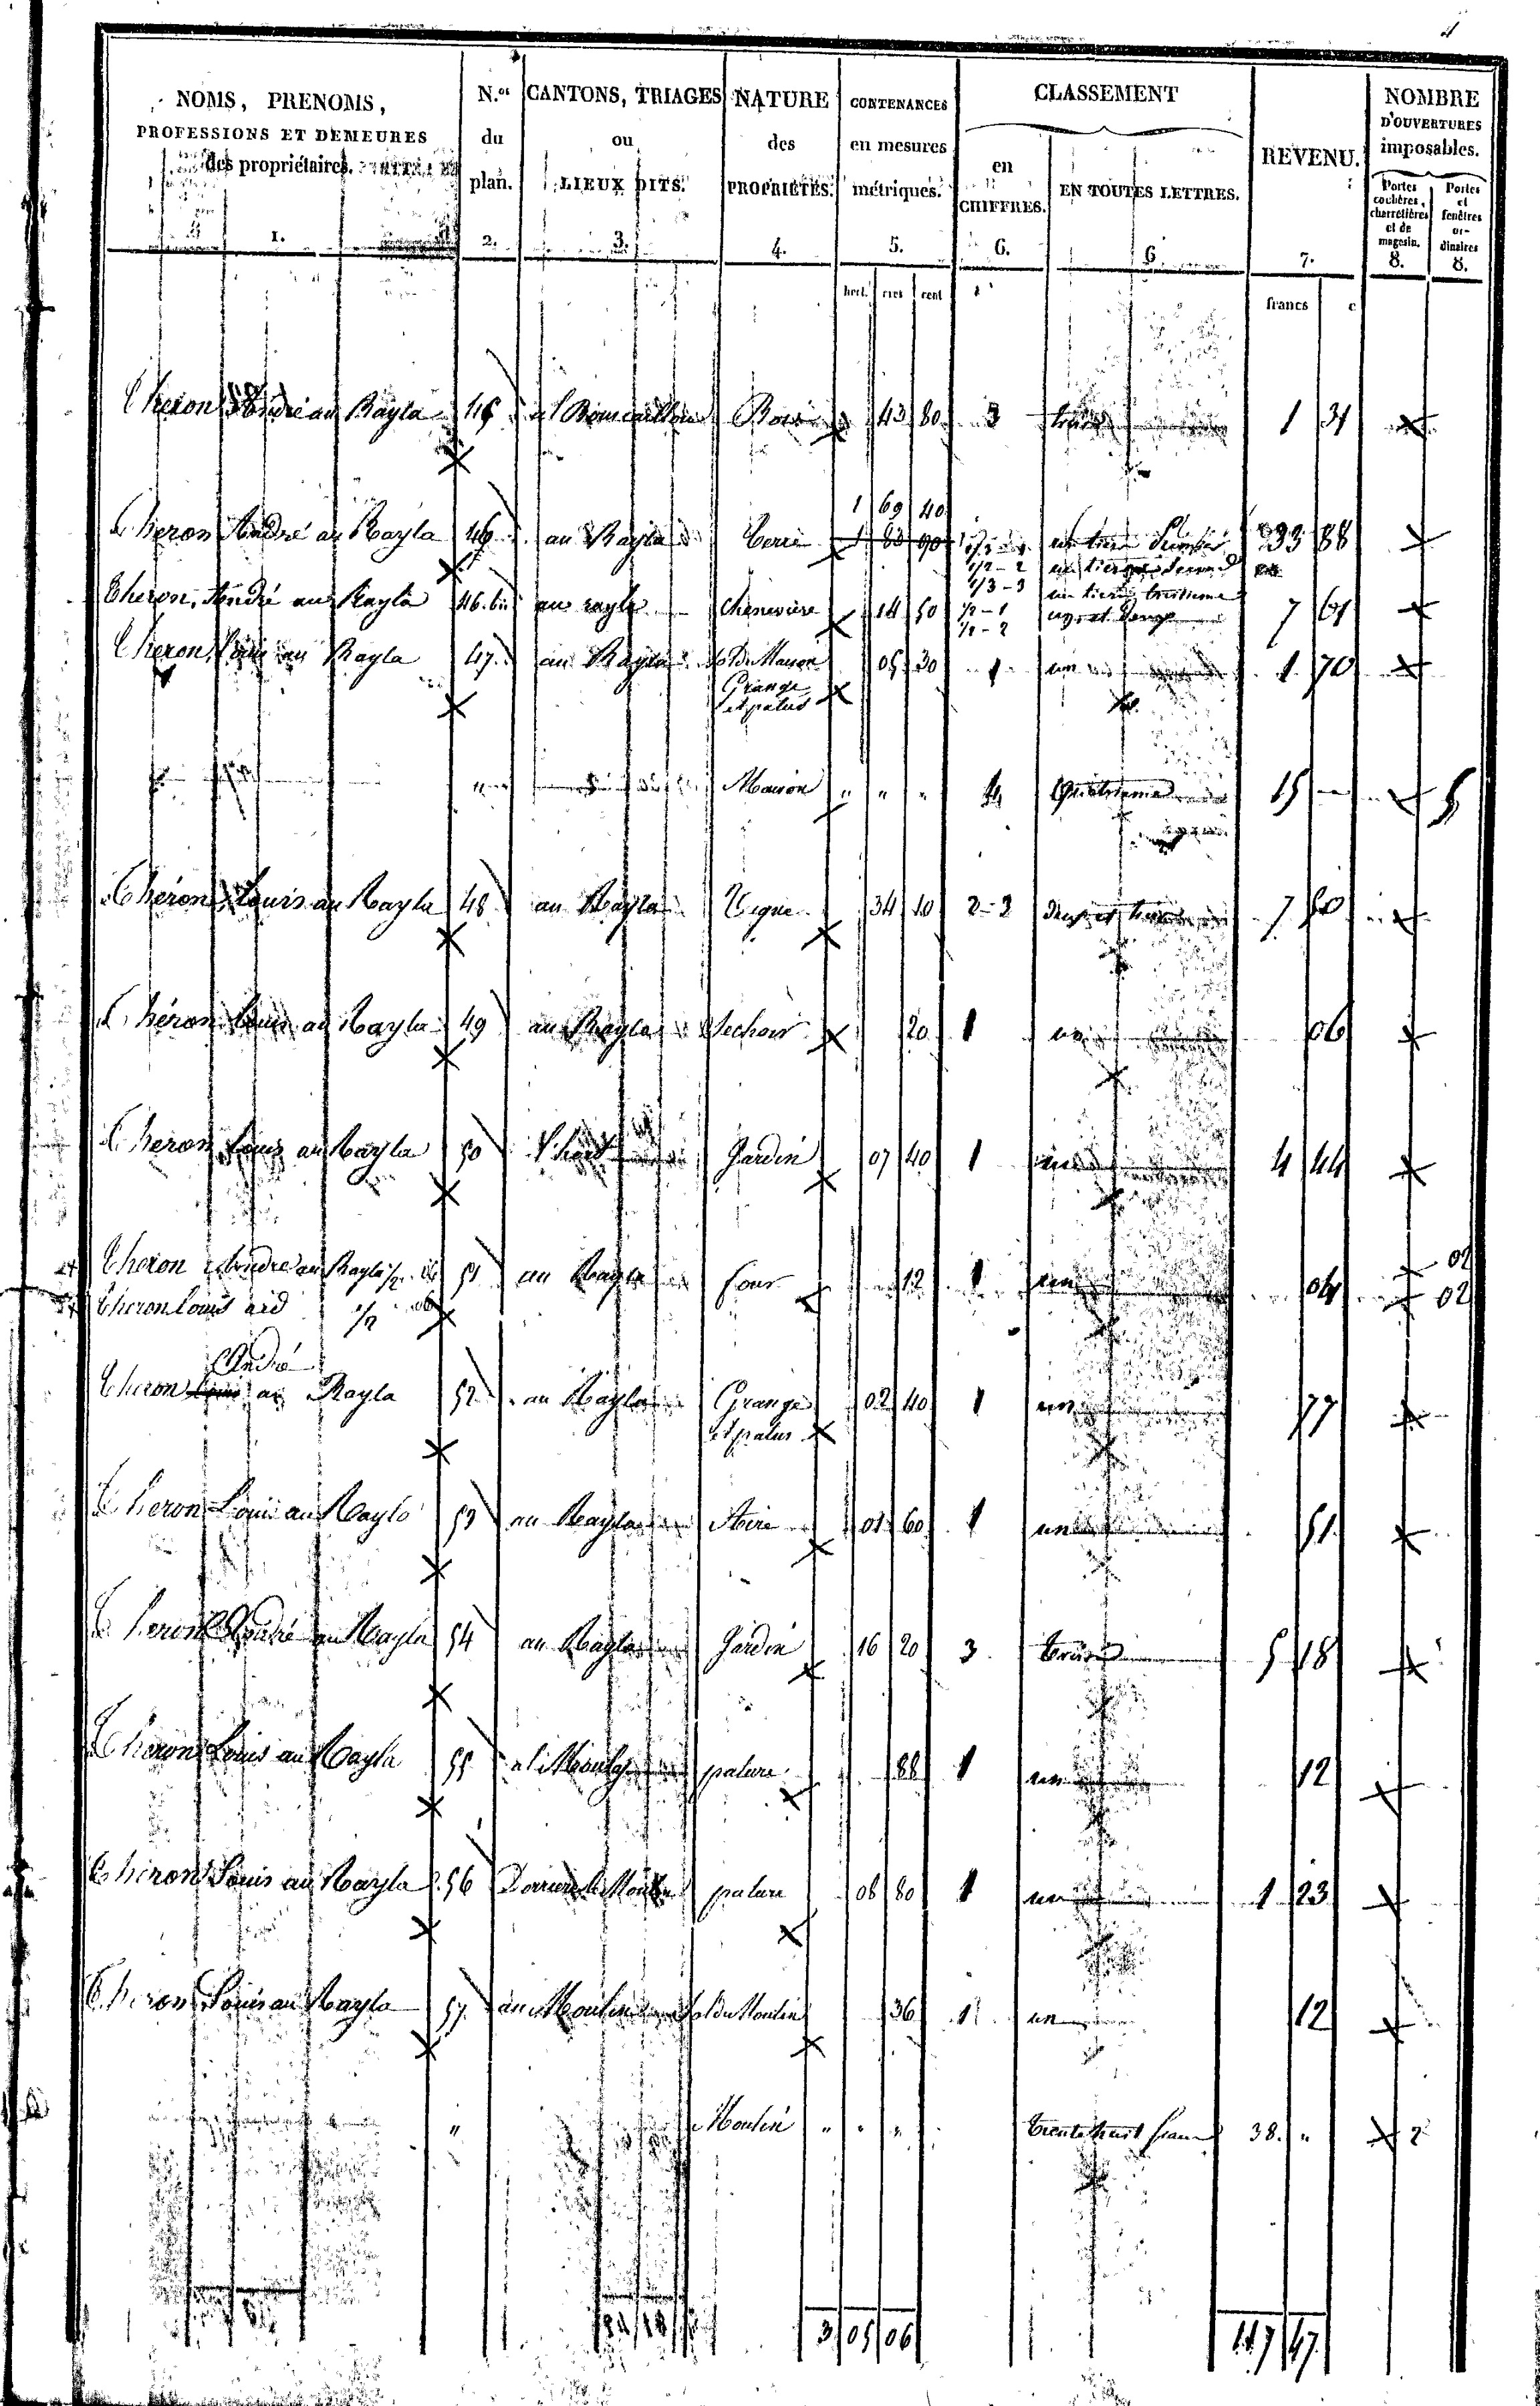 NOMS, PRENOMS,
PROFESSIONS ET DEMEURES
des propriétaires.
1.
N.os
du
plan.
2.
CANTONS, TRIAGES
ou
LIEUX DITS.
3.
NATURE
des
PROPRIÉTÉS.
4.
CONTENANCES
en mesures
métriques.
5.
CLASSEMENT
en
CHIFFRES.
6.
EN TOUTES LETTRES.
6.
REVENU.
7.
NOMBRE
D'OUVERTURES
imposables.
Portes
cochères,
charretières
et de
magasin.
8.
Portes
et
fenêtres
or-
dinaires
8.
hect. ares cent
francs c
Theron André au Rayla Bois 43 80 3 trois 1 31
1 69 40
Theron André au Rayla 46 au Rayla Terre 1 83 90 33 88
1/2 - 2
1/3 - 3 un tiers troisieme
Theron, André au Rayla 46.bis au rayla Chenevière 14 50 1/2 - 1 7 61
1/2 - 2
Theron Louis au Rayla 47 au Rayla Sol de Maison 05 30 1 un 1 70
Grange
et patus
" Maison " " " 4 Quatrieme 15 5
Theron Louis au Rayla 48 au Rayla Vigne 34 10 2-3 deux et trois 7 50
Theron Louis au Rayla 49 au Rayla Sechoir 20 1 un 06
Theron Louis au Rayla 50 Jardin 07 40 1 un 4 44
Theron André au Rayla 1/2 51 au Rayla four 12 1 un 04 02
Theron Louis aid 1/2 02
André
Theron Louis au Rayla 52 au Rayla Grange 02 40 1 un 77
et patus
Theron Louis au Rayla 53 au Rayla Aire 01 60 1 un 51
Theron André au Rayla 54 au Rayla Jardin 16 20 3 trois 5 18
Theron Louis au Rayla 55 pature 88 1 un 12
Theron Louis au Rayla 56 Derriere le Moulin pature 08 80 1 un 1 23
Theron Louis au Rayla 57 au Moulin Sol du Moulin 36 1 un 12
" Moulin " " " Trente huit francs 38. " 2
3 05 06 117 47